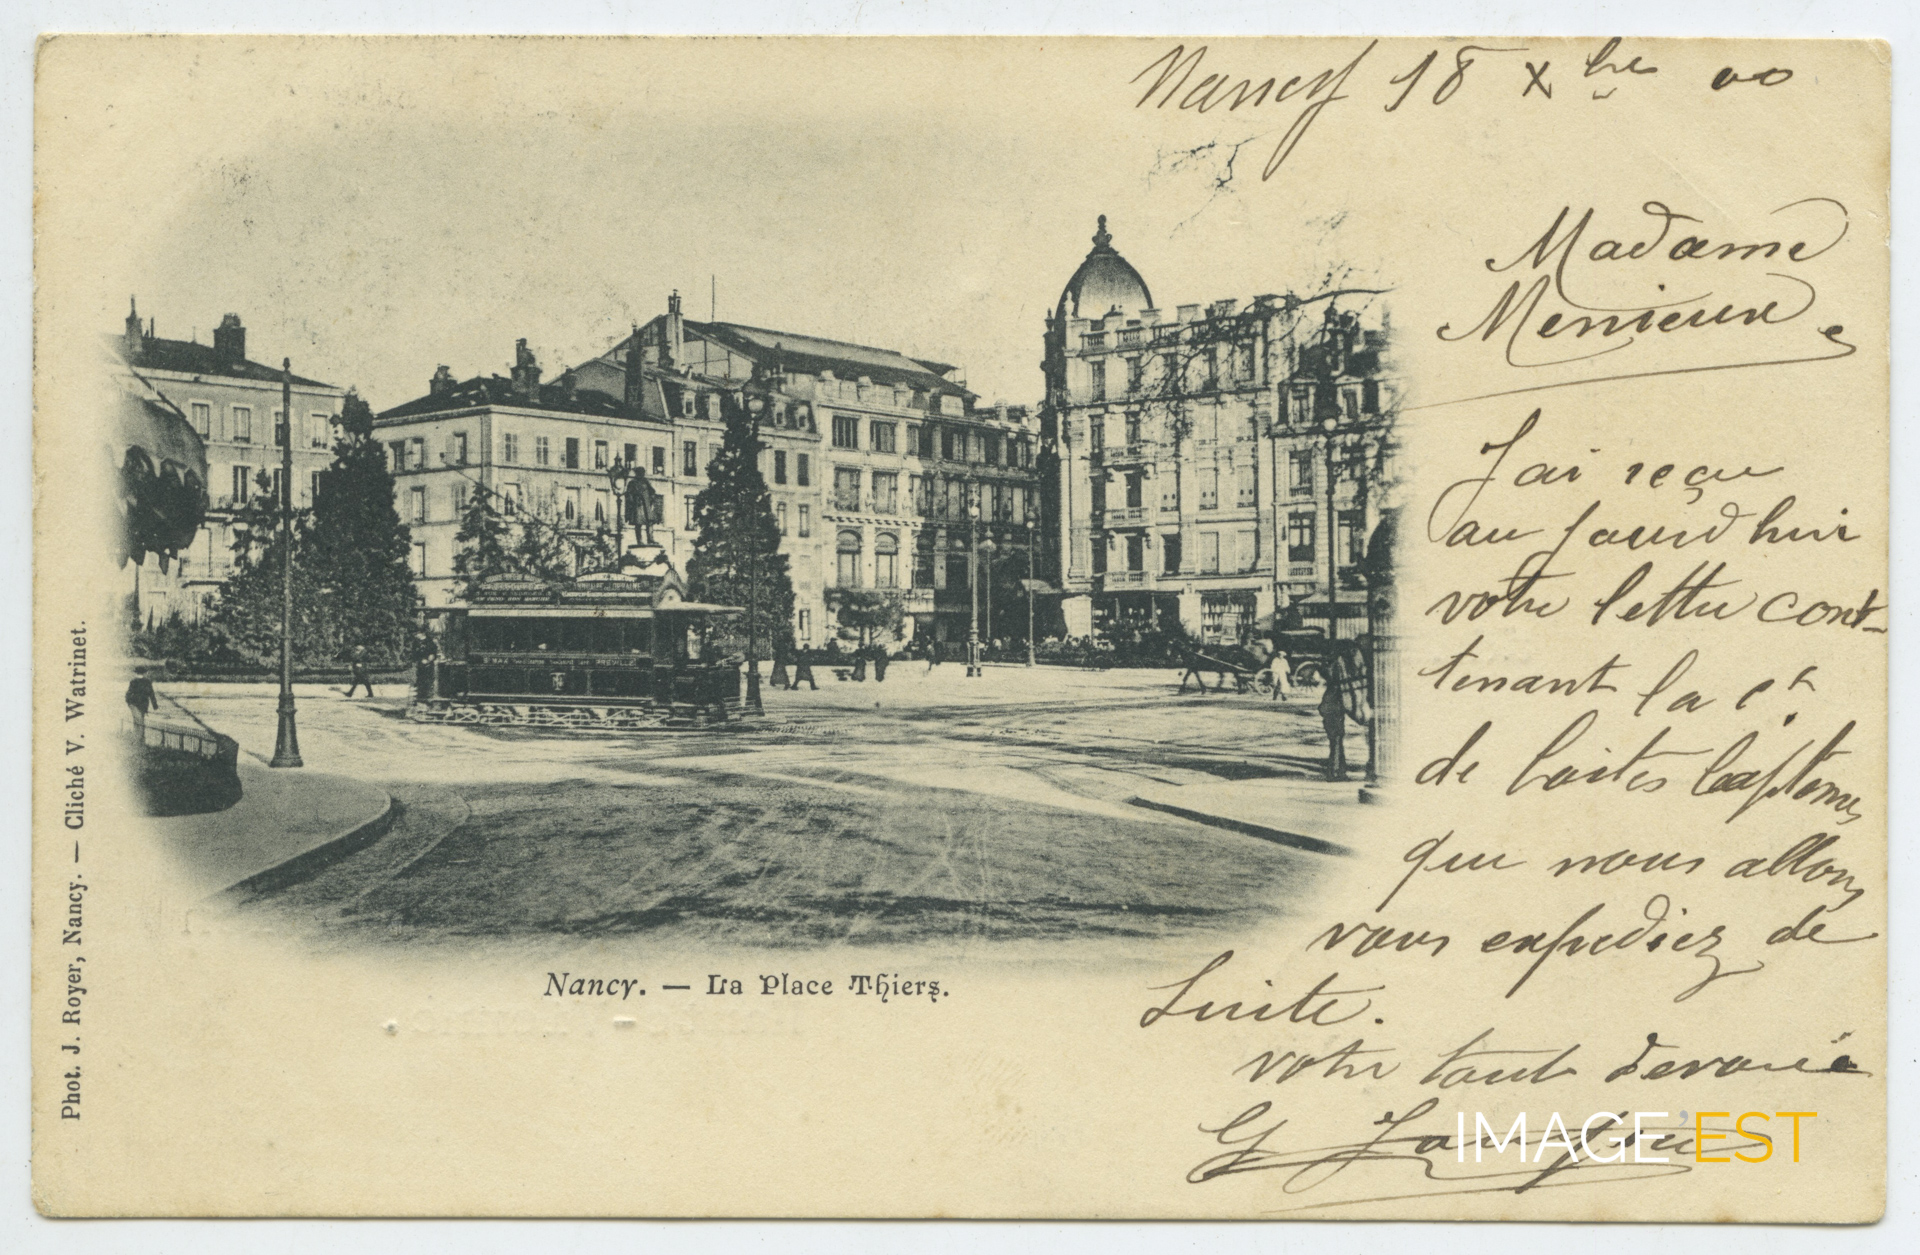 Nancy 18 Xbre 00
Madame
Menieux
J'ai reçu
aujourd'hui
votre lettre cont-
tenant la ct
de boites
que nous allons
vous expediez de
suite.
votre tout devouée
G
Nancy. — La Place Thiers.
Phot. J. Royer, Nancy. — Cliché V. Watrinet.
IMAGE'EST